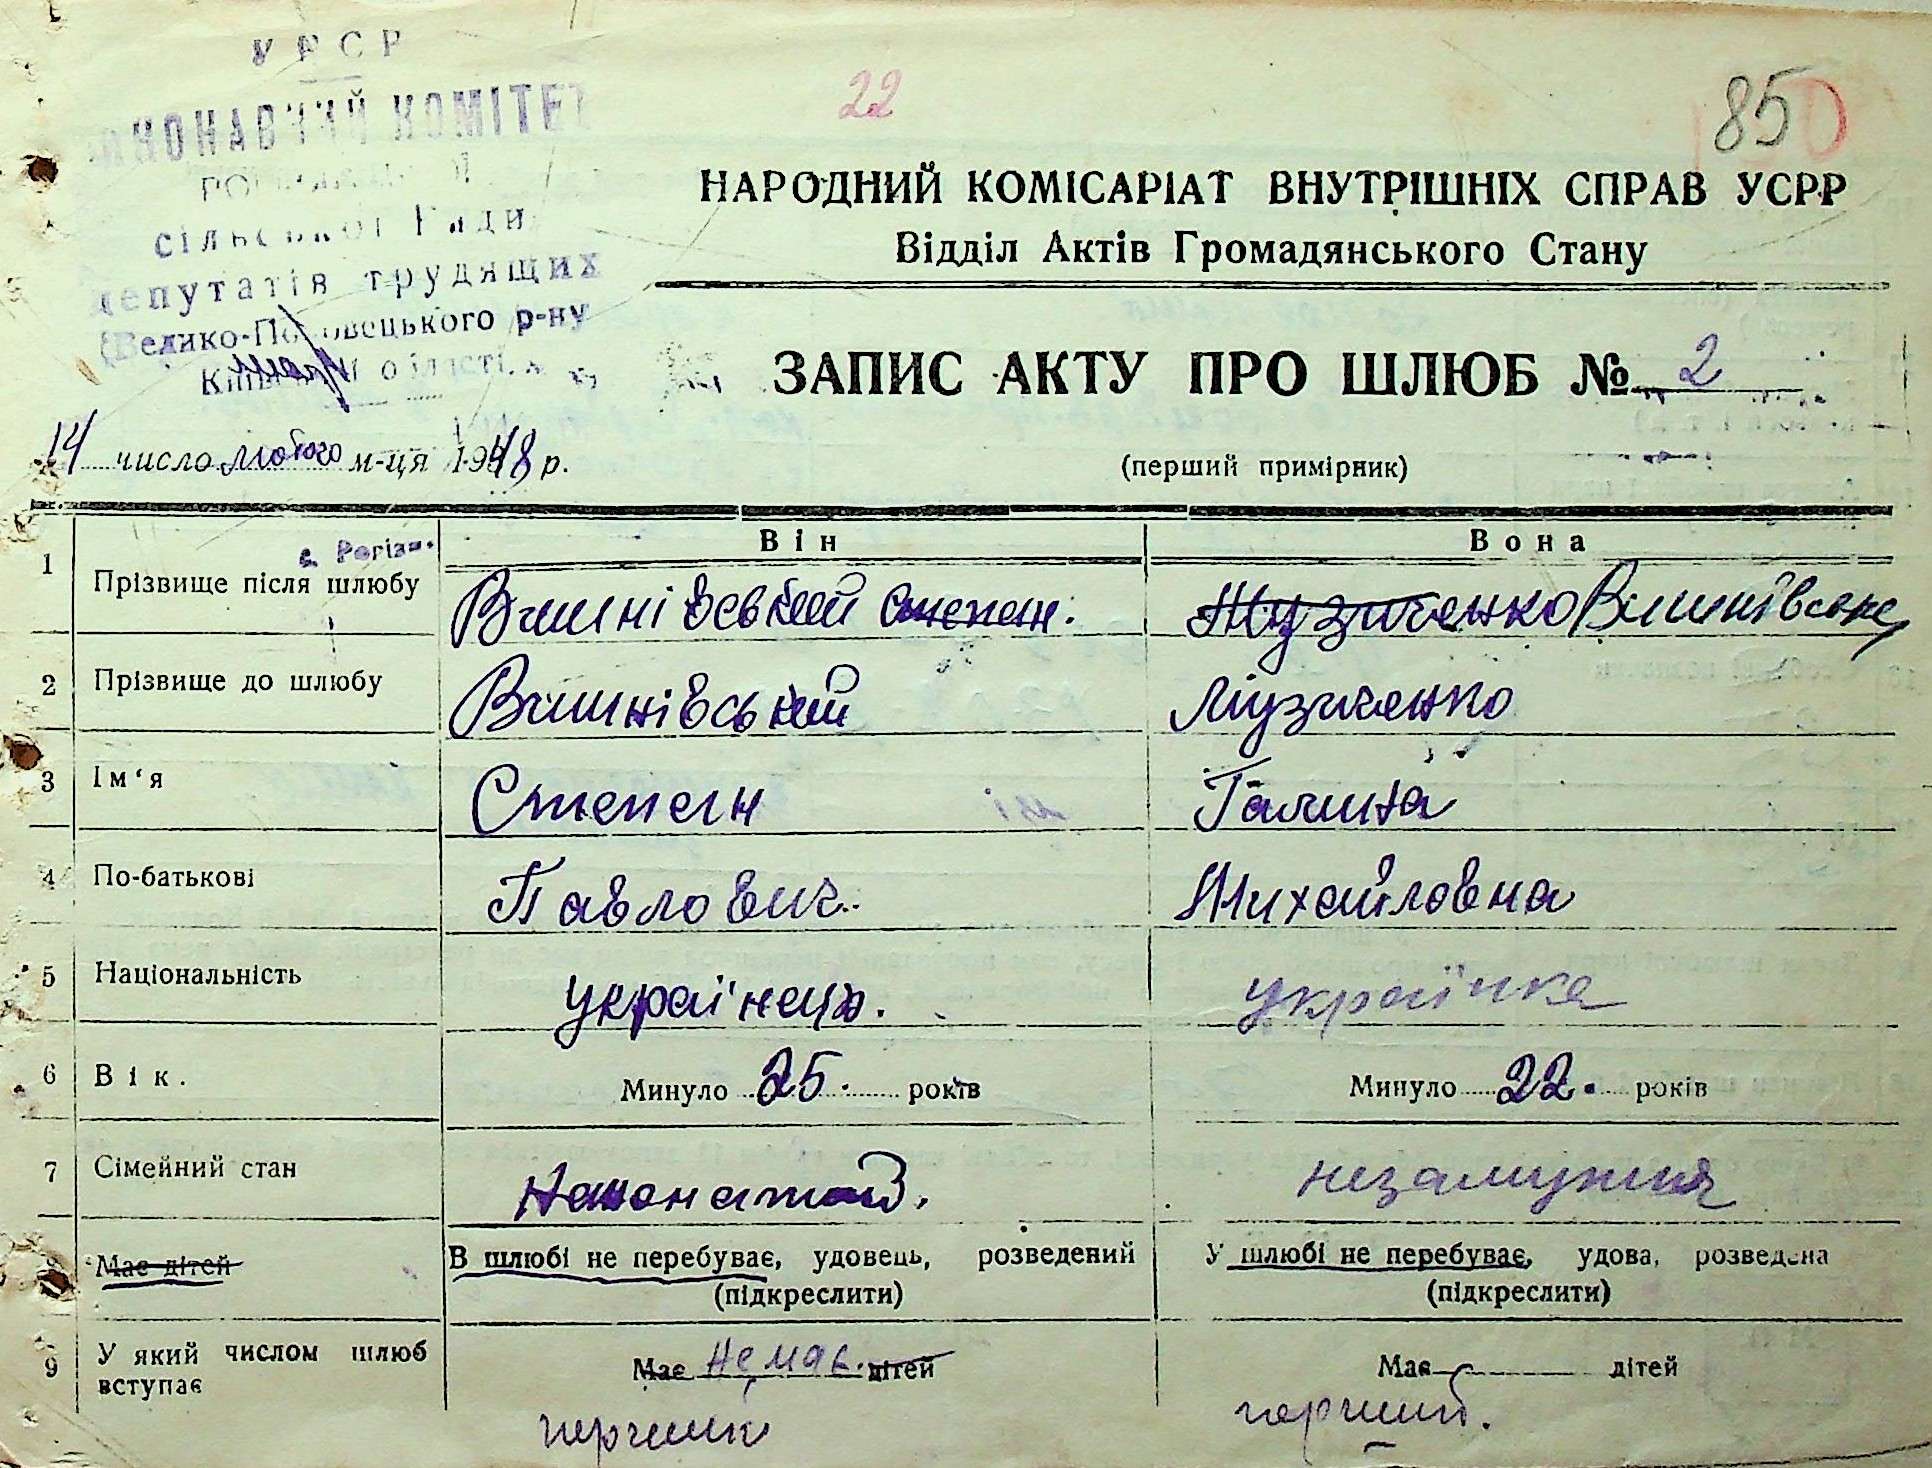 УРСР
ВИКОНАВЧИЙ КОМІТЕТ
сільської Ради
депутатів трудящих
області
22
850
НАРОДНИЙ КОМІСАРІАТ ВНУТРІШНІХ СПРАВ УСРР
Відділ Актів Громадянського Стану
ЗАПИС АКТУ ПРО ШЛЮБ № 2
14 число лютого м-ця 1948 р.
(перший примірник)
Він
Вона
1 Прізвище після шлюбу
Вишнівський Степан.
Музиченко Вишнівська
2 Прізвище до шлюбу
Вишнівський
Музиченко
3 Ім‘я
Степан
Галина
4 По-батькові
Павлович.
Михайловна
5 Національність
українець.
українка
6 Вік.
Минуло 25. років
Минуло 22. років
7 Сімейний стан
незамужня
8 Має дітей
В шлюбі не перебуває, удовець, розведений
(підкреслити)
У шлюбі не перебуває, удова, розведена
(підкреслити)
9 У який числом шлюб
вступає
Має немає. дітей
перший
Має дітей
перший.